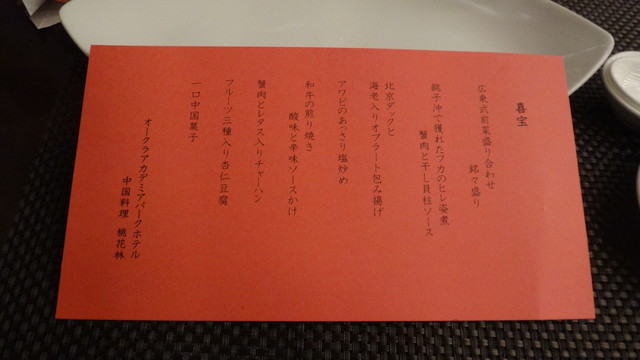 喜宝
広東式前菜盛り合わせ
銘々盛り
銚子沖で獲れたフカのヒレ姿煮
蟹肉と干し貝柱ソース
北京ダックと
海老入りオブラート包み揚げ
アワビのあっさり塩炒め
和牛の煎り焼き
酸味と辛味ソースかけ
蟹肉とレタス入りチャーハン
フルーツ三種入り杏仁豆腐
一口中国菓子
オークラアカデミアパークホテル
中国料理 桃花林